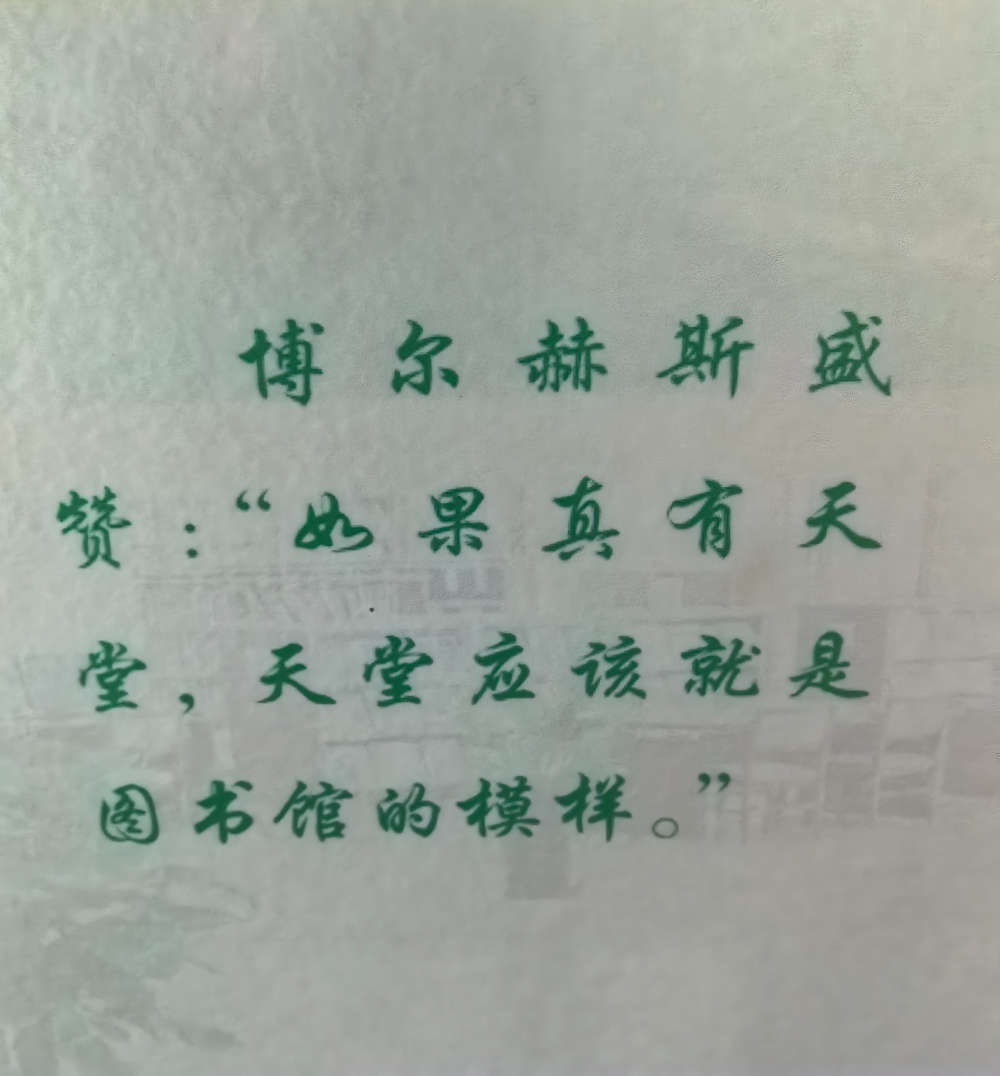 博尔赫斯盛
赞：“如果真有天
堂，天堂应该就是
图书馆的模样。”